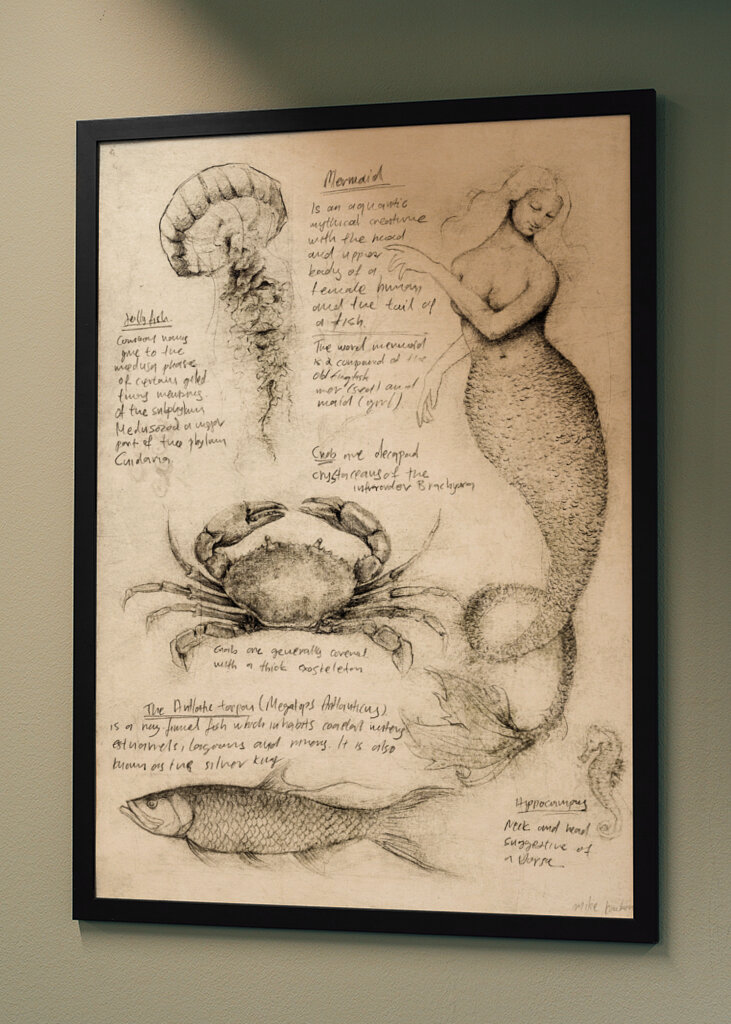 Mermaid
Is an aquatic
mythical creature
with the head
and upper
body of a
female human
and the tail of
a fish
The word mermaid
is a compound of the
old english
mer (sea) and
maid (girl)
Jelly fish
Common name
give to the
medusa phase
of certain
members
of the subphylum
Medusozoa a major
part of the phylum
Cnidaria
Crab are decapod
crystaceans of the
infraorder Brachyura
Crab are generally covered
with a thick exoskeleton
The Atlatic tarpon (Megalops Atlanticus)
is a ray finned fish which inhabits coastal waters
estuaries, lagoons and rivers. It is also
known as the silver king
Hippocampus
Neck and head
suggestive of
a Horse
mike